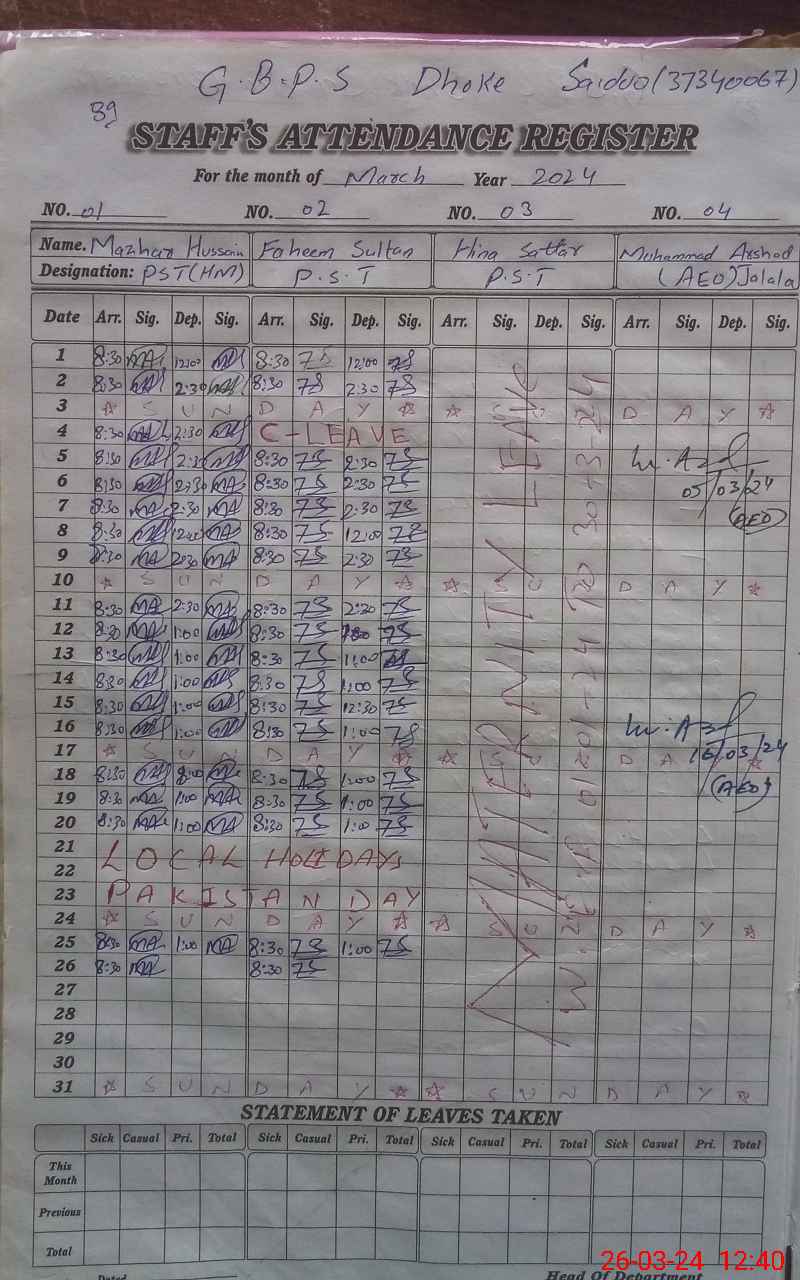 G.B.P.S Dhoke Saiddo (37340067)
39
STAFF'S ATTENDANCE REGISTER
For the month of March Year 2024
NO. 01 NO. 02 NO. 03 NO. 04
Name. Mazhar Hussain Faheem Sultan Hina Sattar Muhammad Arshad
Designation: PST(HM) P.S.T P.S.T (AEO) Jalala
Date Arr. Sig. Dep. Sig. Arr. Sig. Dep. Sig. Arr. Sig. Dep. Sig. Arr. Sig. Dep. Sig.
1 8:30 12:00 8:30 12:00
2 8:30 2:30 8:30 2:30
3 ☆ S U N D A Y ☆ ☆ S U D A Y ☆
4 8:30 2:30 C-LEAVE
5 8:30 2:30 8:30 2:30
6 8:30 2:30 8:30 2:30 05/03/24
7 8:30 2:30 8:30 2:30 (AEO)
8 8:30 12:00 8:30 12:00
9 8:30 2:30 8:30 2:30
10 ☆ S U N D A Y ☆ ☆ S U D A Y ☆
11 8:30 2:30 8:30 2:30
12 8:30 1:00 8:30 1:00
13 8:30 1:00 8:30 1:00
14 8:30 1:00 8:30 1:00
15 8:30 1:00 8:30 12:30
16 8:30 1:00 8:30 1:00
17 ☆ S U N D A Y ☆ ☆ S U D A 16/03/24
18 8:30 8:30 1:00 (AEO)
19 8:30 1:00 8:30 1:00
20 8:30 1:00 8:30 1:00
21
LOCAL HOLIDAYS
22
23 PAKISTAN DAY
24 ☆ S U N D A Y ☆ ☆ S U D A Y ☆
25 8:30 1:00 8:30 1:00
26 8:30 8:30
27
28
29
30
31 ☆ S U N D A Y ☆ ☆ S U N D A Y ☆
MATERNITY LEAVE
W.E.F 01-01-24 TO 30-3-24
STATEMENT OF LEAVES TAKEN
Sick Casual Pri. Total Sick Casual Pri. Total Sick Casual Pri. Total Sick Casual Pri. Total
This
Month
Previous
Total
Dated Head Of Department
26-03-24 12:40